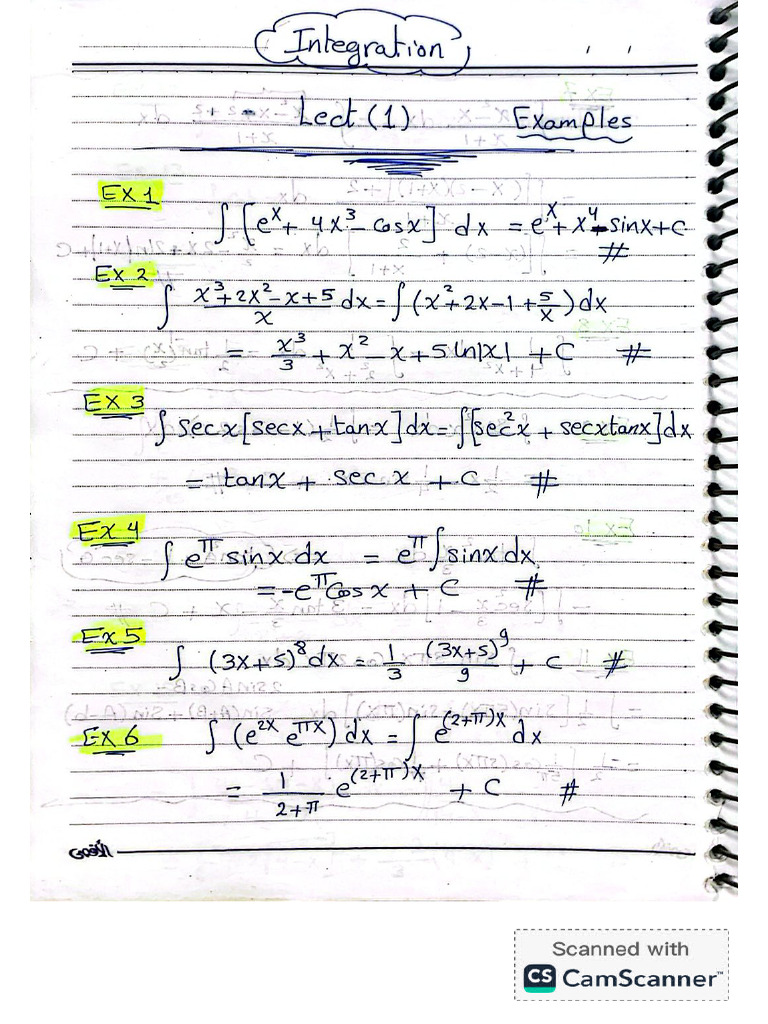 Integration
Lect (1) Examples
EX 1
∫ [e^x + 4x^3 - cosx] dx = e^x + x^4 - sinx + c #
EX 2
∫ (x^3 + 2x^2 - x + 5)/x dx = ∫ (x^2 + 2x - 1 + 5/x) dx
= x^3/3 + x^2 - x + 5 ln|x| + C #
EX 3
∫ secx [secx + tanx] dx = ∫ [sec^2 x + secxtanx] dx
= tanx + secx + C #
Ex 4
∫ e^π sinx dx = e^π ∫ sinx dx
= -e^π Cosx + C #
Ex 5
∫ (3x+5)^8 dx = 1/3 (3x+5)^9/9 + C #
EX 6
∫ (e^2x e^πx) dx = ∫ e^(2+π)x dx
= 1/(2+π) e^(2+π)x + C #
Scanned with
CS CamScanner™